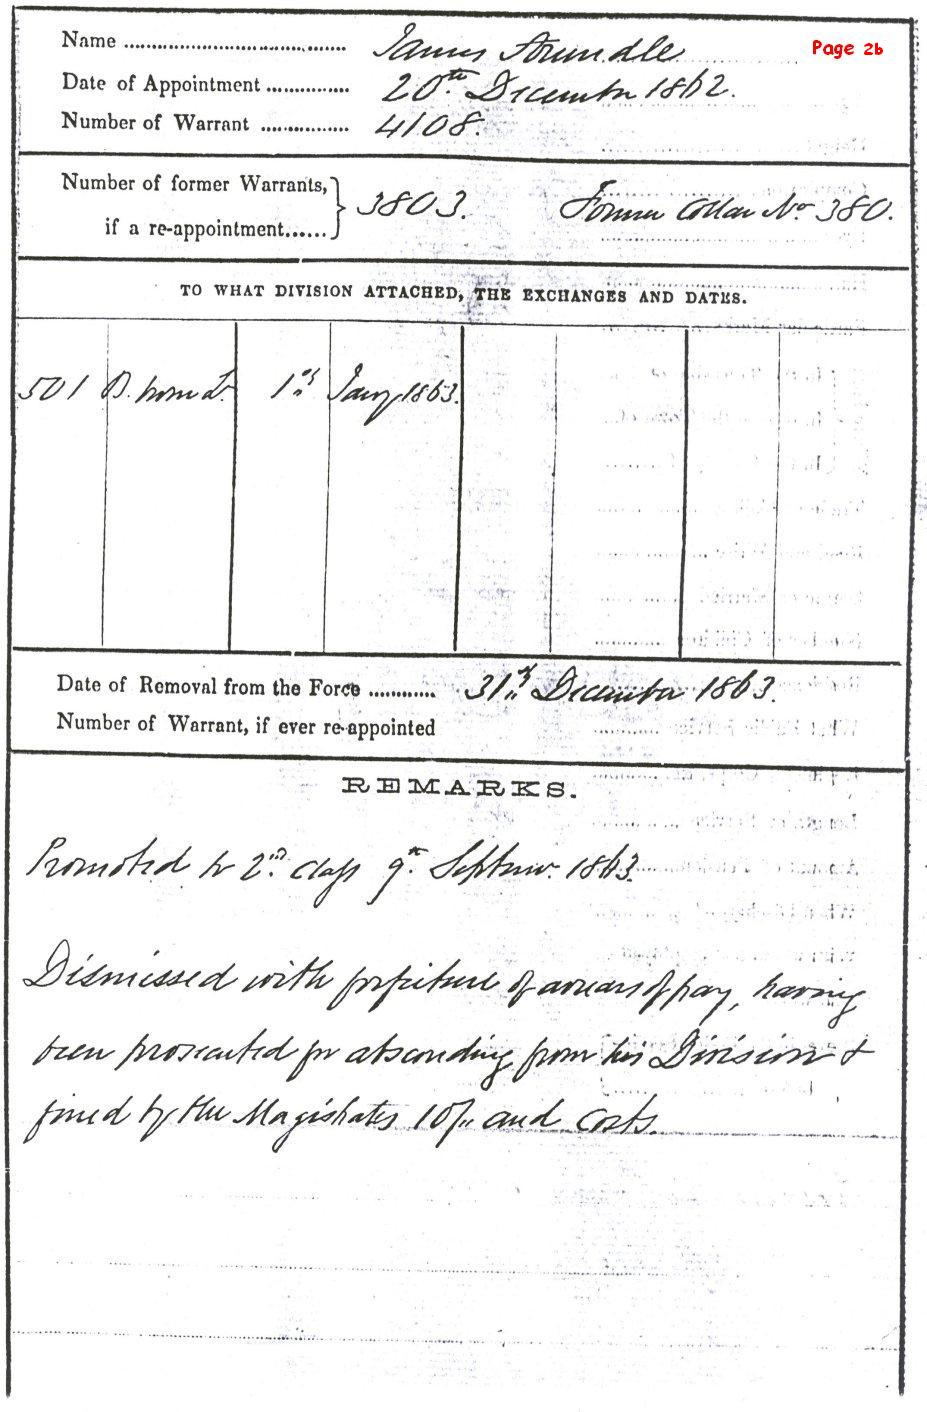 Page 2b
Name ........................................ James Arundle
Date of Appointment .............. 20th December 1862.
Number of Warrant ................ 4108.
Number of former Warrants,
if a re-appointment...... } 3803. Former Collar No 380.
TO WHAT DIVISION ATTACHED, THE EXCHANGES AND DATES.
501 D. from 1st Jany 1863.
Date of Removal from the Force ............ 31st December 1863.
Number of Warrant, if ever re-appointed
REMARKS.
Promoted to 2nd class 9th Septemr. 1863.
Dismissed with forfeiture of arrears of pay, having
been prosecuted for absconding from his Division &
fined by the Magistrates 10/- and costs.